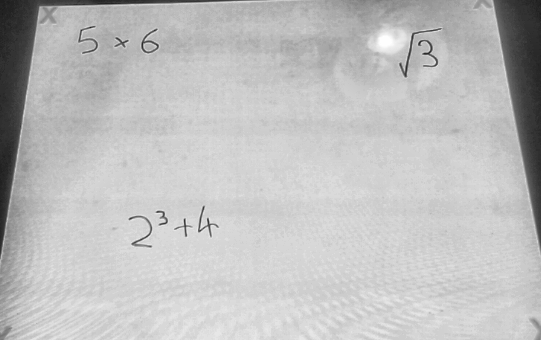 5 × 6
√3
2³+4